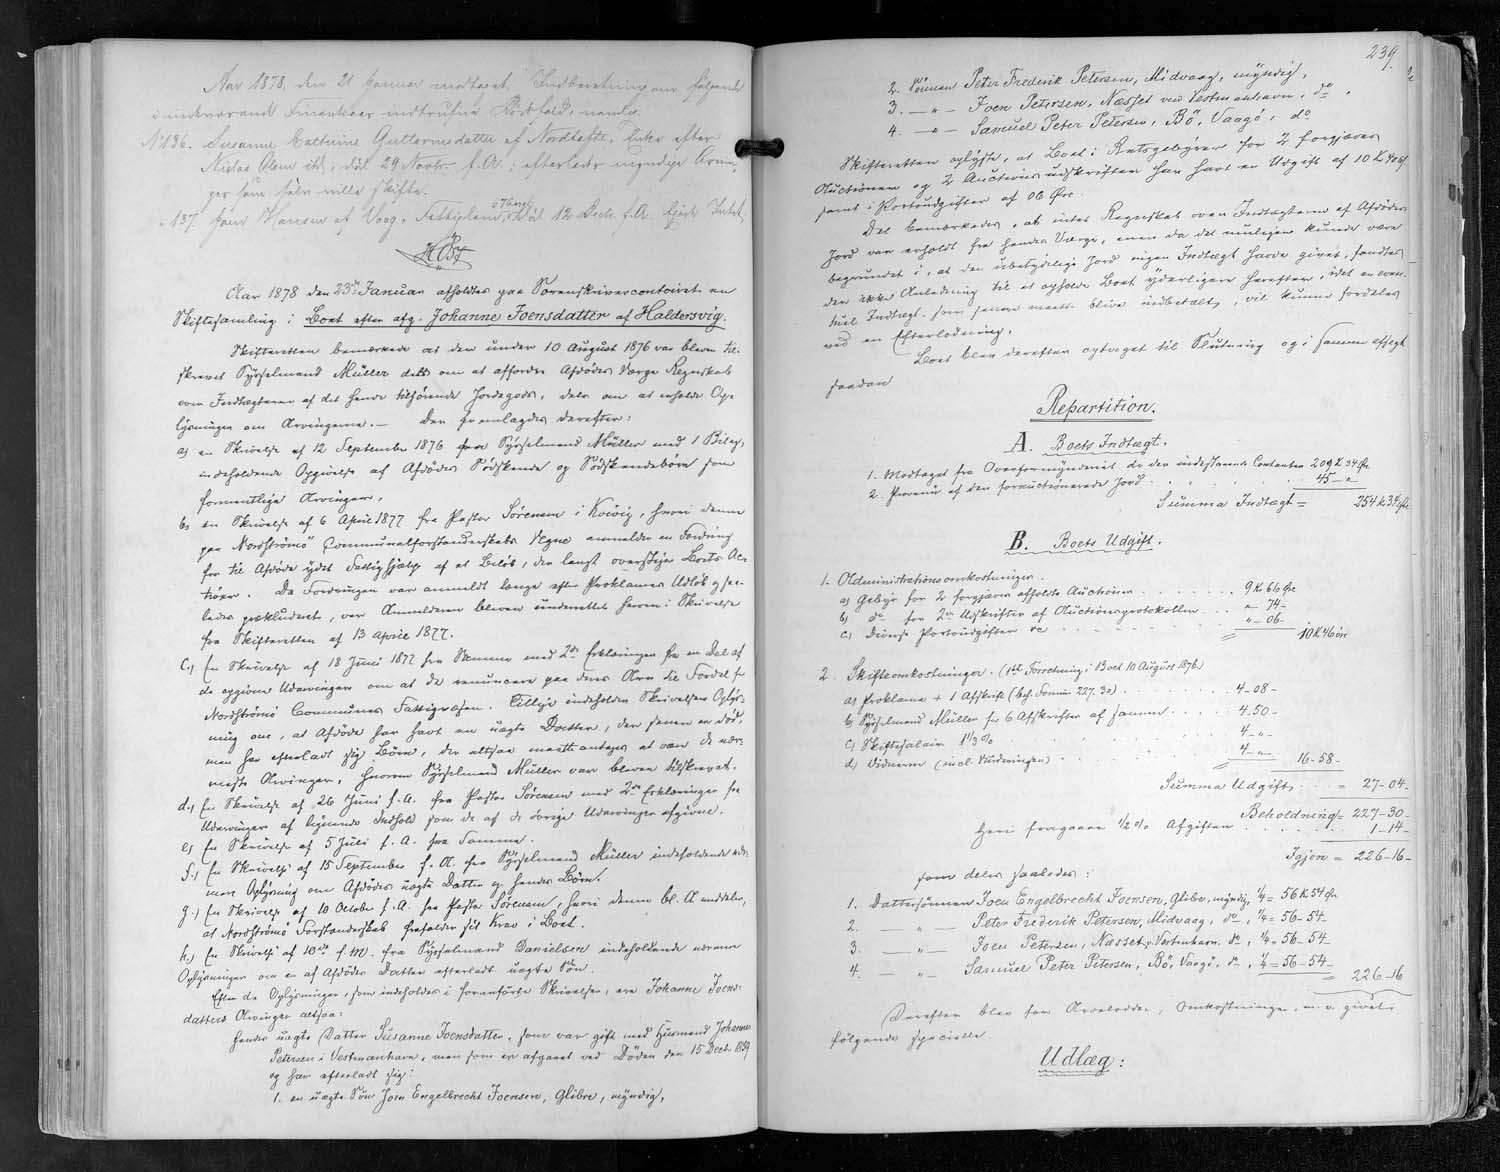 Aar 1878, den 21 Januar modtoges Indberetning om følgende
i indeværende Finantsaar indtrufne Dødsfald, nemlig:
No 136. Susanne Cathrine Guttormsdatter af Nordtofte, Enke efter
Niclas Olsen ibd, død 29 Novbr. f. A.; efterlod myndige Arvin-
ger som selv ville skifte.
" 137. Hansen af Vaag, Fattiglem, 76 aar, død 12 Decbr. f. A. Ejede Intet.
HØst
Aar 1878 den 23de Januar afholdtes paa Sorenskrivercontoiret en
Skiftesamling i Boet efter afg. Johanne Joensdatter af Haldersvig.
Skifteretten bemærkede at der under 10 August 1876 var bleven til-
skrevet Sysselmand Müller dels om at affordre Afdødes Værge Regnskab
over Indtægterne af det hende tilhørende Jordegods, dels om at erholde Op-
lysninger om Arvingerne. — Der fremlagdes derefter:
a) en Skrivelse af 12 September 1876 fra Sysselmand Müller med 1 Bilag,
indeholdende Opgivelse af Afdødes Södskende og Södskendebörn som
formentlige Arvinger.
b) en Skrivelse af 6 April 1877 fra Pastor Sörensen i Kvivig, hvori denne
paa Nordströmö Communalforstanderskabs Vegne anmelder en Fordring
for til Afdøde ydet Fattighjælp af et Beløb, der langt overstiger Boets Ac-
tiver. Da Fordringen var anmeldt længe efter Proklamas Udløb og saa-
ledes præcluderet, var Anmelderen bleven underrettet herom i Skrivelse
fra Skifteretten af 13 April 1877.
c.) En Skrivelse af 18 Juni 1877 fra Samme med 2de Erklæringer fra en Del af
de opgivne Udarvinger om at de renuncere paa deres Arv til Fordel for
Nordströmö Communes Fattigvæsen. Tillige indeholder Skrivelsen Oplys-
ning om, at Afdøde har havt en uægte Datter, der senere er død,
men har efterladt sig Börn, der altsaa maatte antages at være de nær-
meste Arvinger, hvorom Sysselmand Müller var bleven tilskrevet.
d.) En Skrivelse af 26 Juni f. A. fra Pastor Sörensen med 2de Erklæringer fra
Udarvinger af lignende Indhold som de af de øvrige Udarvinger afgivne.
e) En Skrivelse af 5 Juli f. A. fra Samme.
f.) En Skrivelse af 15 September f. A. fra Sysselmand Müller indeholdende nær-
mere Oplysning om Afdødes uægte Datter og hendes Börn.
g.) En Skrivelse af 10 October f. A. fra Pastor Sörensen, hvori denne bl. A. meddeler,
at Nordströmö Forstanderskab frafalder sit Krav i Boet.
h.) En Skrivelse af 10de f. M. fra Sysselmand Danielsen indeholdende nærmere
Oplysninger om en af Afdødes Datter efterladt uægte Søn.
Efter de Oplysninger, som indeholdes i foranførte Skrivelser, ere Johanne Joens-
datters Arvinger altsaa:
hendes uægte Datter Susanne Joensdatter, som var gift med Husmand Johannes
Petersen i Vestmanhavn, men som er afgaaet ved Døden den 15 Decbr 1859
og har efterladt sig:
1. en uægte Sön Joen Engelbrecht Joensen, Glibre, myndig,
239.
2. Sönnen Peter Frederik Petersen, Midvaag, myndig,
3. — " — Joen Petersen, Næsset ved Vestmanhavn, do,
4. — " — Samuel Peter Petersen, Bö, Vaagö, do
Skifteretten oplyste, at Boet i Retsgebyrer for 2 forgjæves
Auctioner og 2 Auctionsudskrifter har havt en Udgift af 10 K 40 Ø
samt i Portoudgifter af 06 Øre.
Det bemærkedes, at intet Regnskab over Indtægterne af Afdødes
Jord var erholdt fra hendes Værge, men da det muligen kunde være
begrundet i, at den ubetydelige Jord ingen Indtægt havde givet, fandtes
der ikke Anledning til at opholde Boet yderligere herefter, idet en even-
tuel Indtægt som senere maatte blive indbetalt, vil kunne fordeles
ved en Efterlodning.
Boet blev derefter optaget til Slutning og i samme afsagt
saadan
Repartition.
A. Boets Indtægt.
1. Modtaget fra Overformynderiet de der indestaaende Contanter 209 K 34 Øre
2. Provenu af den forauctionerede Jord . . . . 45 - "
Summa Indtægt = 254 K 34 Øre
B. Boets Udgift.
1. Administrationsomkostninger.
a) Gebyr for 2 forgjæves afholdte Auctioner . . . . . . 9 Kr 66 Øre
b) do for 2de Udskrifter af Auctionsprotokollen . . . " - 74 -
c) Diverse Portoudgifter . . . . . . " - 06 -
= 10 K 46 Øre
2. Skifteomkostninger. (1ste Forretning i Boet 10 August 1876)
a) Proklama + 1 Afskrift (beh. Formin 227. 30) . . . . . 4 - 08 -
b) Sysselmand Müller for 6 Afskrifter af samme . . . . . 4 - 50 -
c) Skiftesalair 1 1/3 % . . . . . . 4 - " -
d) Vidnerne (incl. Vurderingen) . . . . . . 4 - " -
= 16 - 58 -
Summa Udgift . . . = 27 - 04.
Beholdning = 227 - 30 -
Heri fragaaer 1/2 % Afgiften . . . . . 1 - 14 -
Igjen = 226 - 16 -
som deles saaledes:
1. Dattersønnen Joen Engelbrecht Joensen, Glibre, myndig, 1/4 = 56 K 54 Øre
2. — " — Peter Frederik Petersen, Midvaag, do, 1/4 = 56 - 54 -
3. — " — Joen Petersen, Næsset v. Vestmhavn. do, 1/4 = 56 - 54
4. — " — Samuel Peter Petersen, Bö, Vaagö, do, 1/4 = 56 - 54 -
= 226 - 16
Derefter blev for Arvelodder, Omkostninger, m. v. givet
følgende specielle
Udlæg: